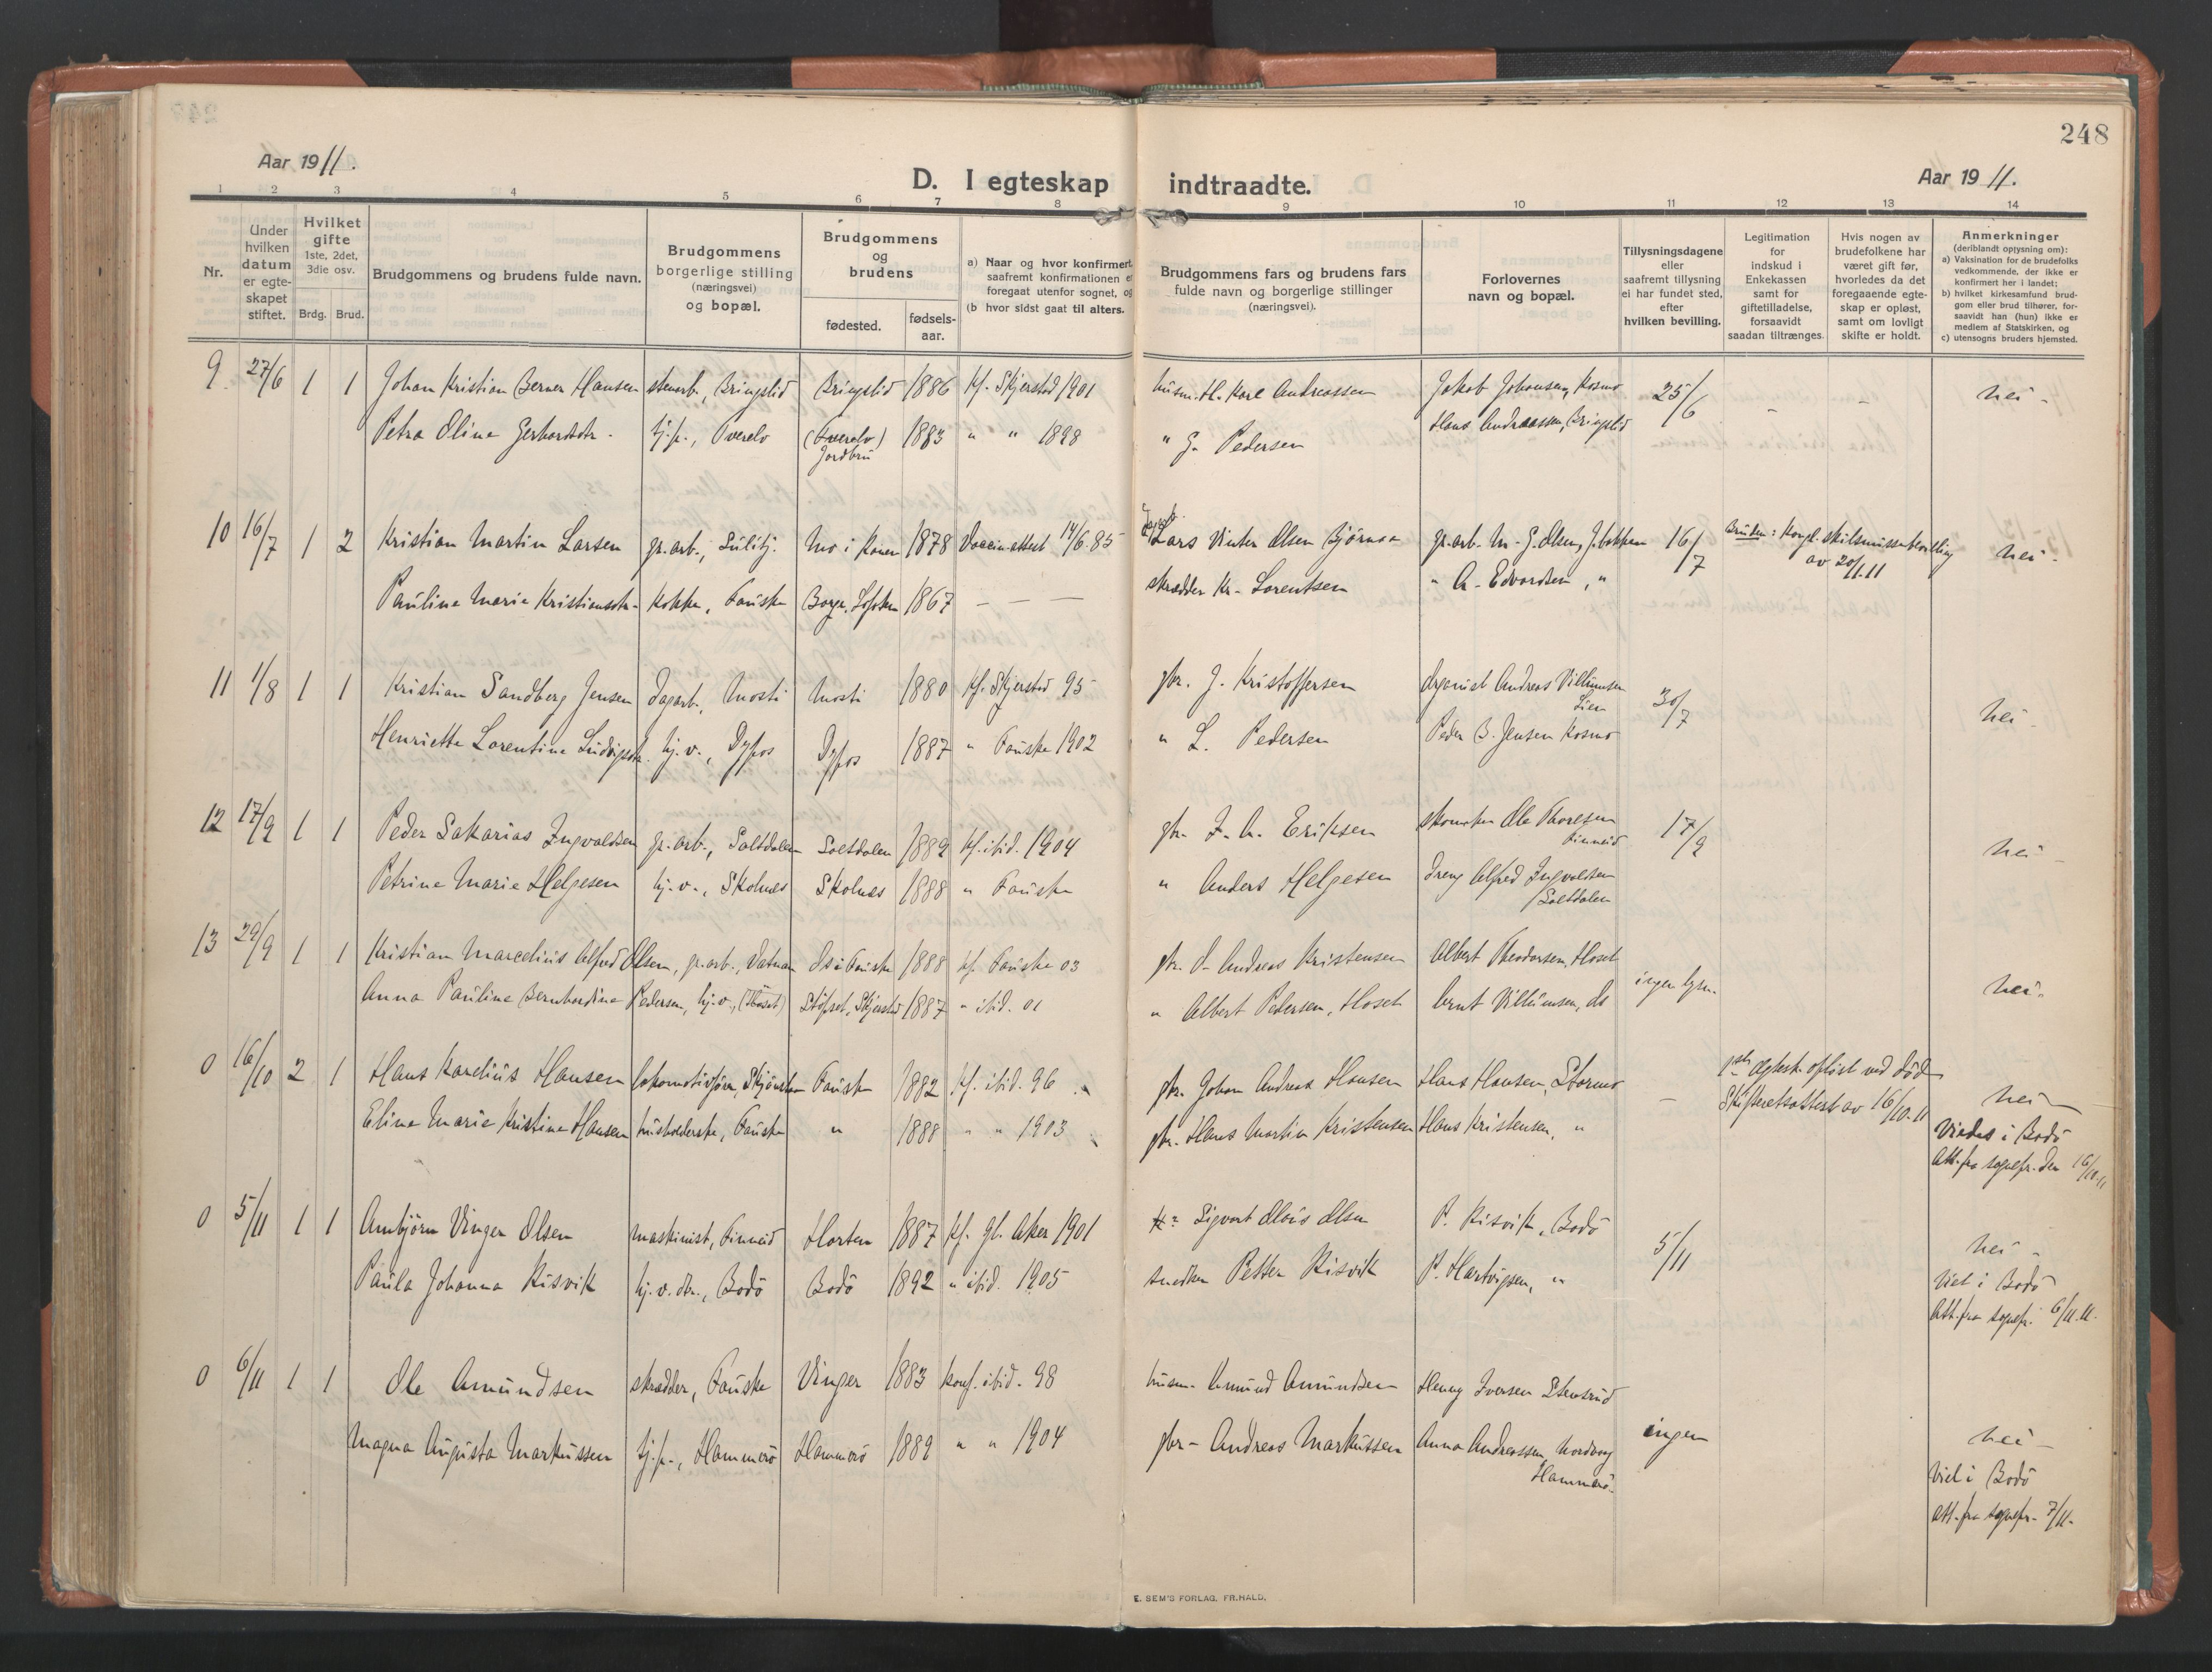 248
Aar 1911.
D. I egteskap indtraadte.
Aar 1911.
1 2 3 4 5 6 7 8 9 10 11 12 13 14
Nr.
Under hvilken datum er egteskapet stiftet.
Hvilket gifte 1ste, 2det, 3die osv.
Brdg. Brud.
Brudgommens og brudens fulde navn.
Brudgommens borgerlige stilling (næringsvei) og bopæl.
Brudgommens og brudens
fødested. fødselsaar.
a) Naar og hvor konfirmert saafremt konfirmationen er foregaat utenfor sognet, og
(b hvor sidst gaat til alters.
Brudgommens fars og brudens fars fulde navn og borgerlige stillinger (næringsvei).
Forlovernes navn og bopæl.
Tillysningsdagene eller saafremt tillysning ei har fundet sted, efter hvilken bevilling.
Legitimation for indskud i Enkekassen samt for giftetilladelse, forsaavidt saadan tiltrænges.
Hvis nogen av brudefolkene har været gift før, hvorledes da det foregaaende egteskap er opløst, samt om lovligt skifte er holdt.
Anmerkninger (deriblandt oplysning om):
a) Vaksination for de brudefolks vedkommende, der ikke er konfirmert her i landet;
b) hvilket kirkesamfund brudgom eller brud tilhører, forsaavidt han (hun) ikke er medlem af Statskirken, og
c) utensogns bruders hjemsted.
9. 27/6 1 1 Johan Kristian Berner Hansen stenarb., Bringslid Bringslid 1886 kf. Skjerstad 1901 husm. H. Karl Andreassen Jakob Johansen, Kosmo 25/6 - - nei -
Petra Oline Gerhardsdtr. tj.p., Tverelv (Tverelv) 1883 " " 1898 " G. Pedersen Hans Andreassen, Bringslid
Jordbru
10 16/7 1 2 Kristian Martin Larsen gr.arb., Sulitj. Mo i Ranen 1878 Vaccinattest 14/6.85 Lars Vinter Olsen Bjørnaa gr.arb. M. G. Olsen, J.bakken 16/7 Bruden: Kongl. skilsmissebevilling nei -
av 20/1.11
Pauline Marie Kristiansdtr. kokke, Fauske Borge, Lofoten 1867 - - - skrædder Kr. Lorentsen " A. Edvardsen, "
11 1/8 1 1 Kristian Sandberg Jensen dagarb., Mosti Mosti 1880 kf. Skjerstad 95 gbr. J. Kristoffersen Organist Andreas Villumsen 30/7 nei -
Lien
Henriette Lorentine Ludvigsdtr. hj.v., Dypos Dypos 1887 " Fauske 1902 " L. Pedersen Peder B. Jensen Kosmo
12 17/9 1 1 Peder Sakarias Ingvaldsen gr.arb., Saltdalen Saltdalen 1889 kf. ibid. 1904 gbr. I. A. Eriksen skomaker Ole Thoresen 17/9 nei -
Finneid
Petrine Marie Helgesen hj.v., Skolnes Skolnes 1888 " Fauske " Anders Helgesen Dreng Alfred Ingvaldsen
Saltdalen
13 29/9 1 1 Kristian Marcelius Alfred Olsen, gr.arb., Vatnan Os i Fauske 1888 kf. Fauske 03 gbr. O. Andreas Kristensen Albert Theodorsen, Hoset ingen lysn. nei.
Anna Pauline Bernhardine Pedersen, hj.v., (Hoset) Støvset, Skjerstad 1887 " ibid. 01 " Albert Pedersen, Hoset Bernt Villumsen, ds
0 16/10 2 1 Hans Karelius Hansen lokomotivfører, Skjønstu Fauske 1882 kf. ibid. 96 gbr. Johan Andreas Hansen Hans Hansen, Stormo - 1ste ægtesk. opløst ved død nei -
Skifteretsattest av 16/10.11
Eline Marie Kristine Hansen husholderske, Fauske " 1888 " " 1903 gbr. Hans Martin Kristensen Hans Kristensen, " Viedes i Bodø
Att. fra sognepr. den 16/10.11
0 5/11 1 1 Arnbjørn Vinger Olsen maskinist, Finneid Horten 1887 kf. gl. Aker 1901 Sigvart Olaus Olsen P. Risvik, Bodø 5/11 nei -
Paula Johanna Risvik hj.v. dtr., Bodø Bodø 1892 " ibid. 1905 snedker Petter Risvik P. Hartvigsen, " Viet i Bodø
Att. fra sognepr. 6/11.11.
0 6/11 1 1 Ole Amundsen skrædder, Fauske Vinger 1883 konf. ibid. 98 husm. Amund Amundsen Henry Iversen Stensrud ingen
Magna Augusta Markussen tj.p., Hammerø Hammerø 1889 " " 1904 gbr. Andreas Markussen Anna Andreassen, Nordvag nei -
Hammerø.
Viet i Bodø
att. fra sognepr. 7/11.
E. SEM'S FORLAG, FR.HALD.